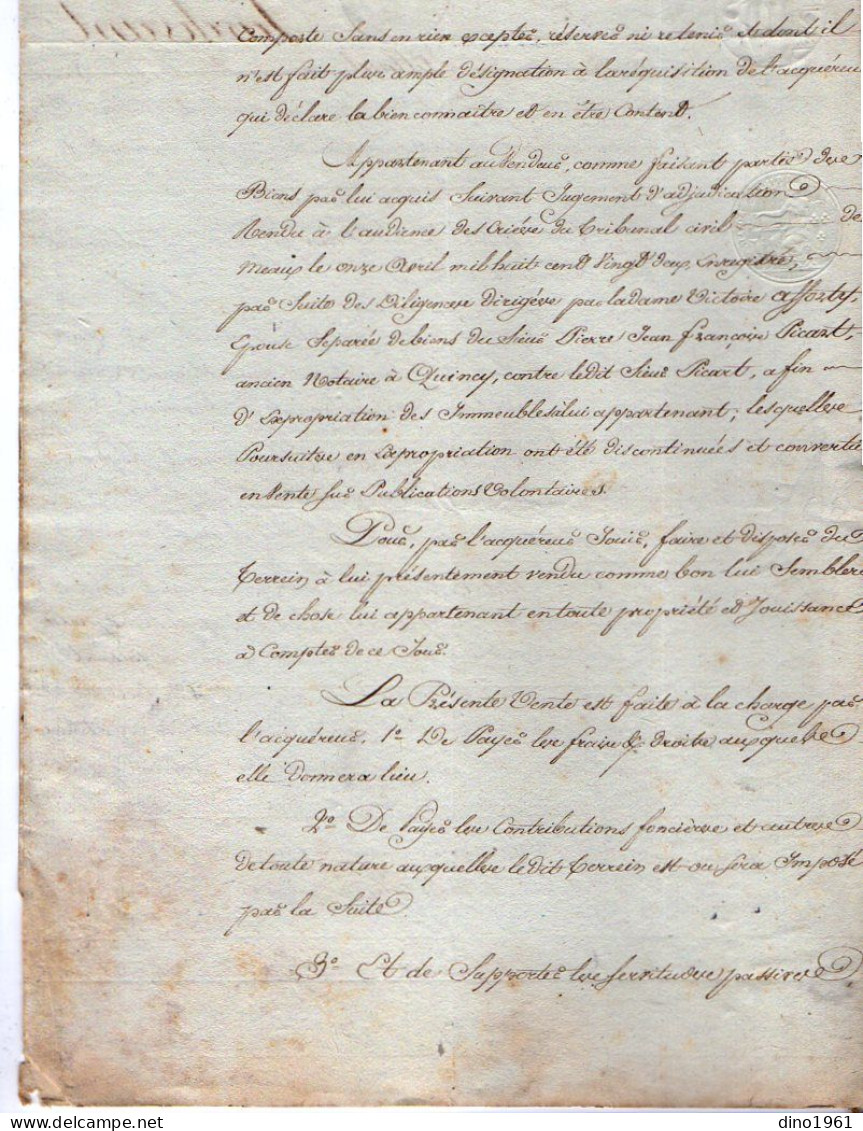 Composte Sans en rien excepter, réserver ni retenir et dont il
n'est fait plus ample désignation à la réquisition de l'acquéreu
qui déclare la bien connaitre et en être Content.
Appartenant au Vendeur, comme faisant partie des
Biens par lui acquis Suivant Jugement d'adjudication
Rendu à l'audience des Criées du Tribunal civil de
Meaux le onze Avril mil huit cent Vingt deux, Enregistré,
par Suite des Diligences dirigées par la dame Victoire afforty,
Epouse Séparée de biens du Sieur Pierre Jean françois Picart,
ancien Notaire à Quincy, contre ledit Sieur Picart, afin
d'Expropriation des Immeubles à lui appartenant, lesquelles
Poursuites en Expropriation ont été discontinuées et converti
en Vente sur Publications Volontaires.
Pour, par l'acquéreur Jouir, faire et disposer du
Terrein à lui présentement vendu comme bon lui Semblera
et de chose lui appartenant en toute propriété et Jouissance
à Compter de ce Jour.
La Présente Vente est faite à la charge par
l'acquéreur. 1° De Payer les frais & droits auxquels
elle donnera lieu.
2° De Payer les Contributions foncières et autres
de toute nature auxquelles ledit Terrein est ou sera Imposé
par la Suite
3° Et de Supporter les servitudes passives
dino1961